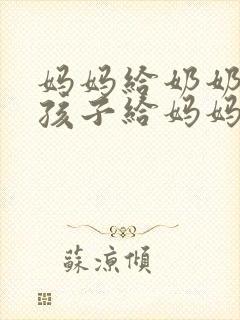 妈妈给奶奶
孩子给妈妈
蘇凉傾